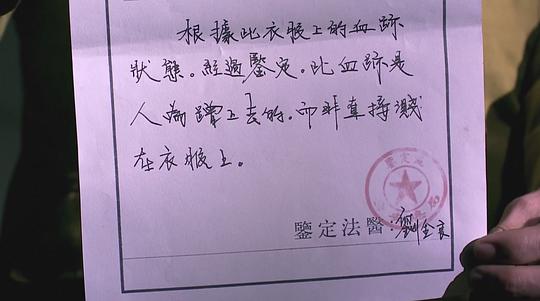 根據此衣服上的血跡
狀態。經過鑒定。此血跡是
人為蹭上去的。而非直接濺
在衣服上。
鑒定法醫：劉全